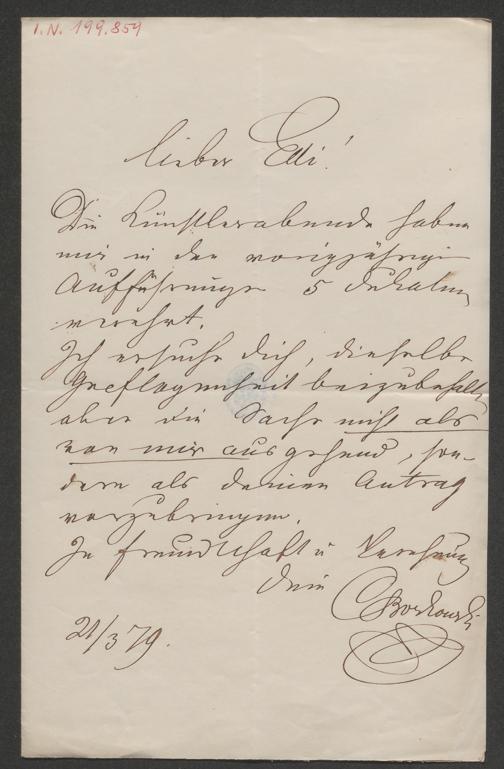 I.N. 199.859
Lieber Edi!
Die Künstlerabende haben
mir in der vorigjährigen
Aufführungen 5 Dukaten
verehrt.
Ich ersuche Dich, dieselbe
Gepflogenheit beizubehalten
aber die Sache nicht als
von mir ausgehend, son-
dern als deinen Antrag
vorzubringen.
In Freundschaft u Verehrung
Dein
21/3 79.